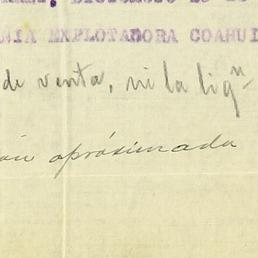 NIA EXPLOTADORA COAHUI
de venta, ni la liqn
ón apróximada